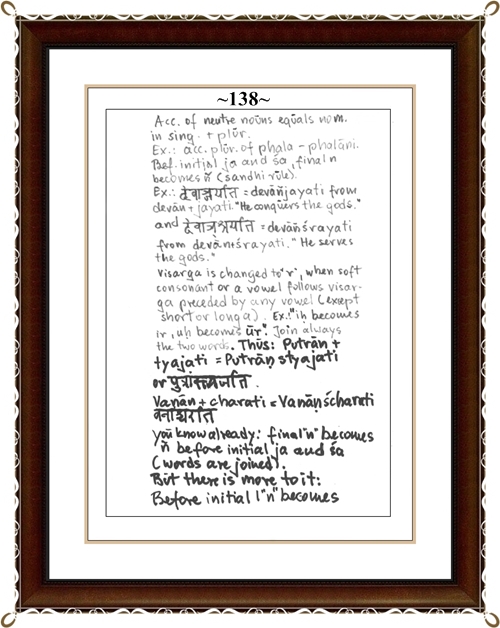 ~138~
Acc. of neutre noūns eqūals nom.
in sing. + plūr.
Ex.: acc. plūr. of phala - phalāni.
Bef. initial ja and śa, final n
becomes ñ (sandhi rūle).
Ex.: देवाञ्जयति = devāñjayati from
devān + jayati. "He conqūers the gods."
and देवाञ्श्रयति = devāñśrayati
from devān+śrayati. "He serves
the gods."
Visarga is changed to "r", when soft
consonant or a vowel follows visar-
ga preceded by any vowel (except
short or long a). Ex.: "iḥ becomes
ir, uḥ becomes ūr". Join always
the two words. Thūs: Putrān +
tyajati = Putrāṇ styajati
or पुत्रांस्त्यजति.
Vanān + charati = Vanāṇścharati
वनांश्चरति
yoū know already: final "n" becomes
ñ before initial ja and śa
(words are joined).
Būt there is more to it:
Before initial l "n" becomes